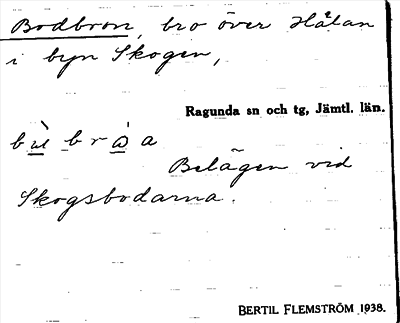 Bodbron, bro över Hålan
i byn Skogen,
Ragunda sn och tg, Jämtl. län.
Belägen vid
Skogsbodarna.
BERTIL FLEMSTRÖM 1938.